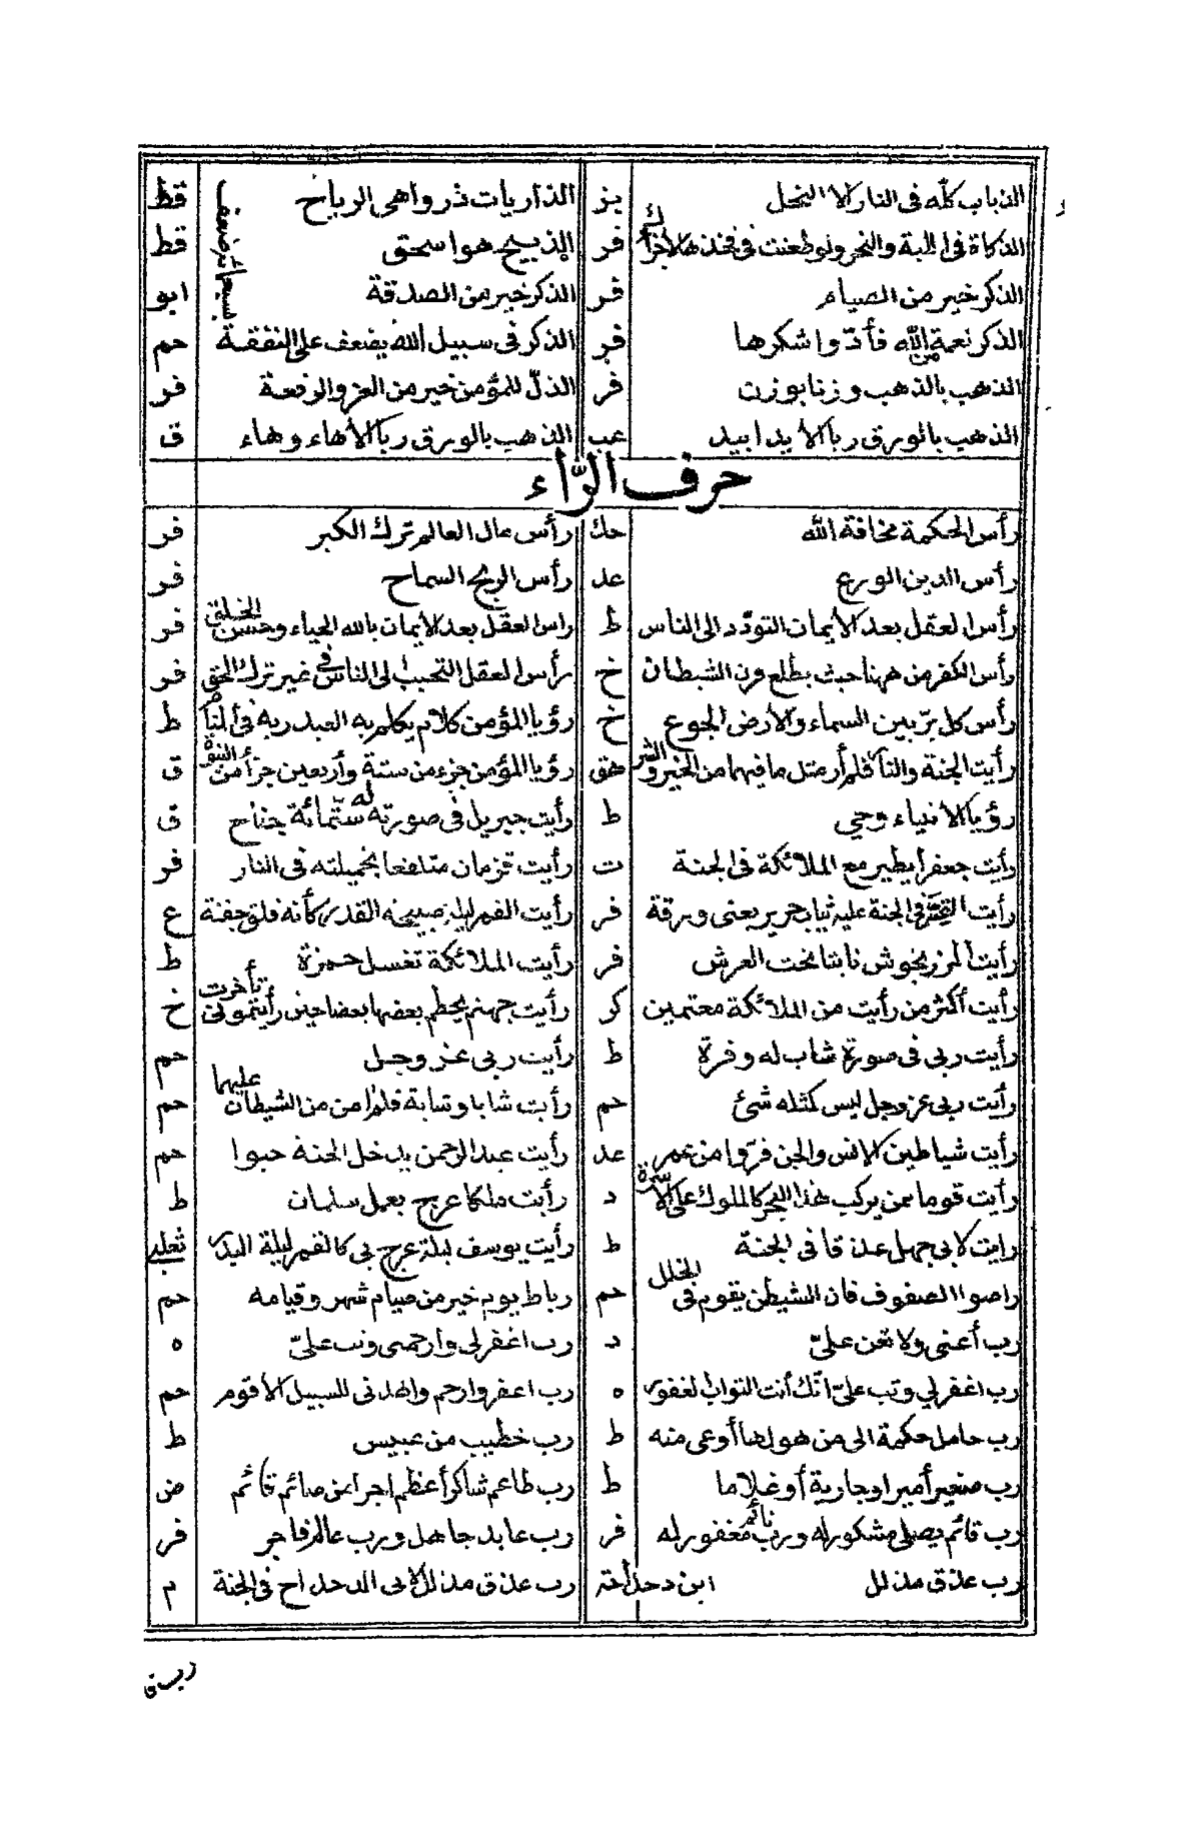 الذباب كلّه فى النار الا النحل بز الذاريات ذروا هى الرياح قط
الذكاة فى اللبة والنحر ولو طعنت فى فخذها لأجزأك فر الذبيح هو اسحق قط
الذكر خير من الصيام فر الذكر خير من الصدقة ابو
الذكر نعمة من الله فأدّوا شكرها فر الذكر فى سبيل الله يضعف على النفقة بسبعمائة ضعف حم
الذهب بالذهب وزنا بوزن فر الذلّ للمؤمن خير من العز والرفعة فر
الذهب بالورق ربا الا يدا بيد عب الذهب بالورق ربا الا هاء وهاء ق
حرف الرّاء
رأس الحكمة مخافة الله حك رأس مال العالم ترك الكبر فر
رأس الدين الورع عد رأس الربح السماح فر
رأس العقل بعد الأيمان التودّد الى الناس ط راس العقل بعد الأيمان بالله الحياء وحسن الخلق فر
رأس الكفر من ههنا حيث يطلع قرن الشيطان خ رأس العقل التحبب الى الناس فى غير ترك الحق فر
رأس كل برّ بين السماء والأرض الجوع خ رؤيا المؤمن كلام يكلم به العبد ربه فى المنام ط
رأيت الجنة والنار فلم أر مثل ما فيهما من الخير والشر هق رؤيا المؤمن جزء من ستة وأربعين جزأ من النبوة ق
رؤيا الانبياء وحي ط رأيت جبريل فى صورته له ستّمائة جناح ق
رأيت جعفر يطير مع الملائكة فى الجنة ت رأيت قزمان متلفعا بخميلته فى النار فر
رأيت القس فى الجنة عليه ثياب حرير يعنى ورقة فر رأيت القمر ليلة صبيحة القدر كأنه فلق جفنة ع
رأيت المرزنجوش نابتا تحت العرش فر رأيت الملائكة تغسل حمزة ط
رأيت أكثر من رأيت من الملائكة معتمين كر رأيت جهنم يحطم بعضها بعضا حين رأيتمونى تأخرت خ
رأيت ربى فى صورة شاب له وفرة ط رأيت ربى عز وجل حم
رأيت ربى عز وجل ليس كمثله شئ حم رأيت شابا وشابة فلم امن من الشيطان عليهما حم
رأيت شياطين الانس والجن فرّوا من عمر عد رأيت عبد الرحمن يدخل الجنة حبوا حم
رأيت قوما ممن يركب هذا البحر كالملوك على الاسرة د رأيت ملكا عرج بعمل سلمان ط
رايت لابى جهل عذقا فى الجنة ط رأيت يوسف ليلة عرج بى كالقمر ليلة البدر ثعلبى
راصوا الصفوف فان الشيطن يقوم فى الخلل حم رباط يوم خير من صيام شهر وقيامه حم
رب أعنى ولا تعن علىّ د رب اغفر لى وارحمنى وتب علىّ ه
رب اغفر لي وتب علىّ انّك أنت التواب الغفور ه رب اغفر وارحم واهدنى للسبيل الأقوم حم
رب حامل حكمة الى من هو لها أوعى منه ط رب خطيب من عبس ط
رب صغير أميرا وجارية أو غلاما ط رب طاعم شاكر أعظم اجرا من صائم قائم ض
رب قائم يصلى مشكور له ورب نائم مغفور له فر رب عابد جاهل ورب عالم فاجر فر
رب عذق مذلل لابن دحداحة رب عذق مذلل لابى الدحداح فى الجنة م